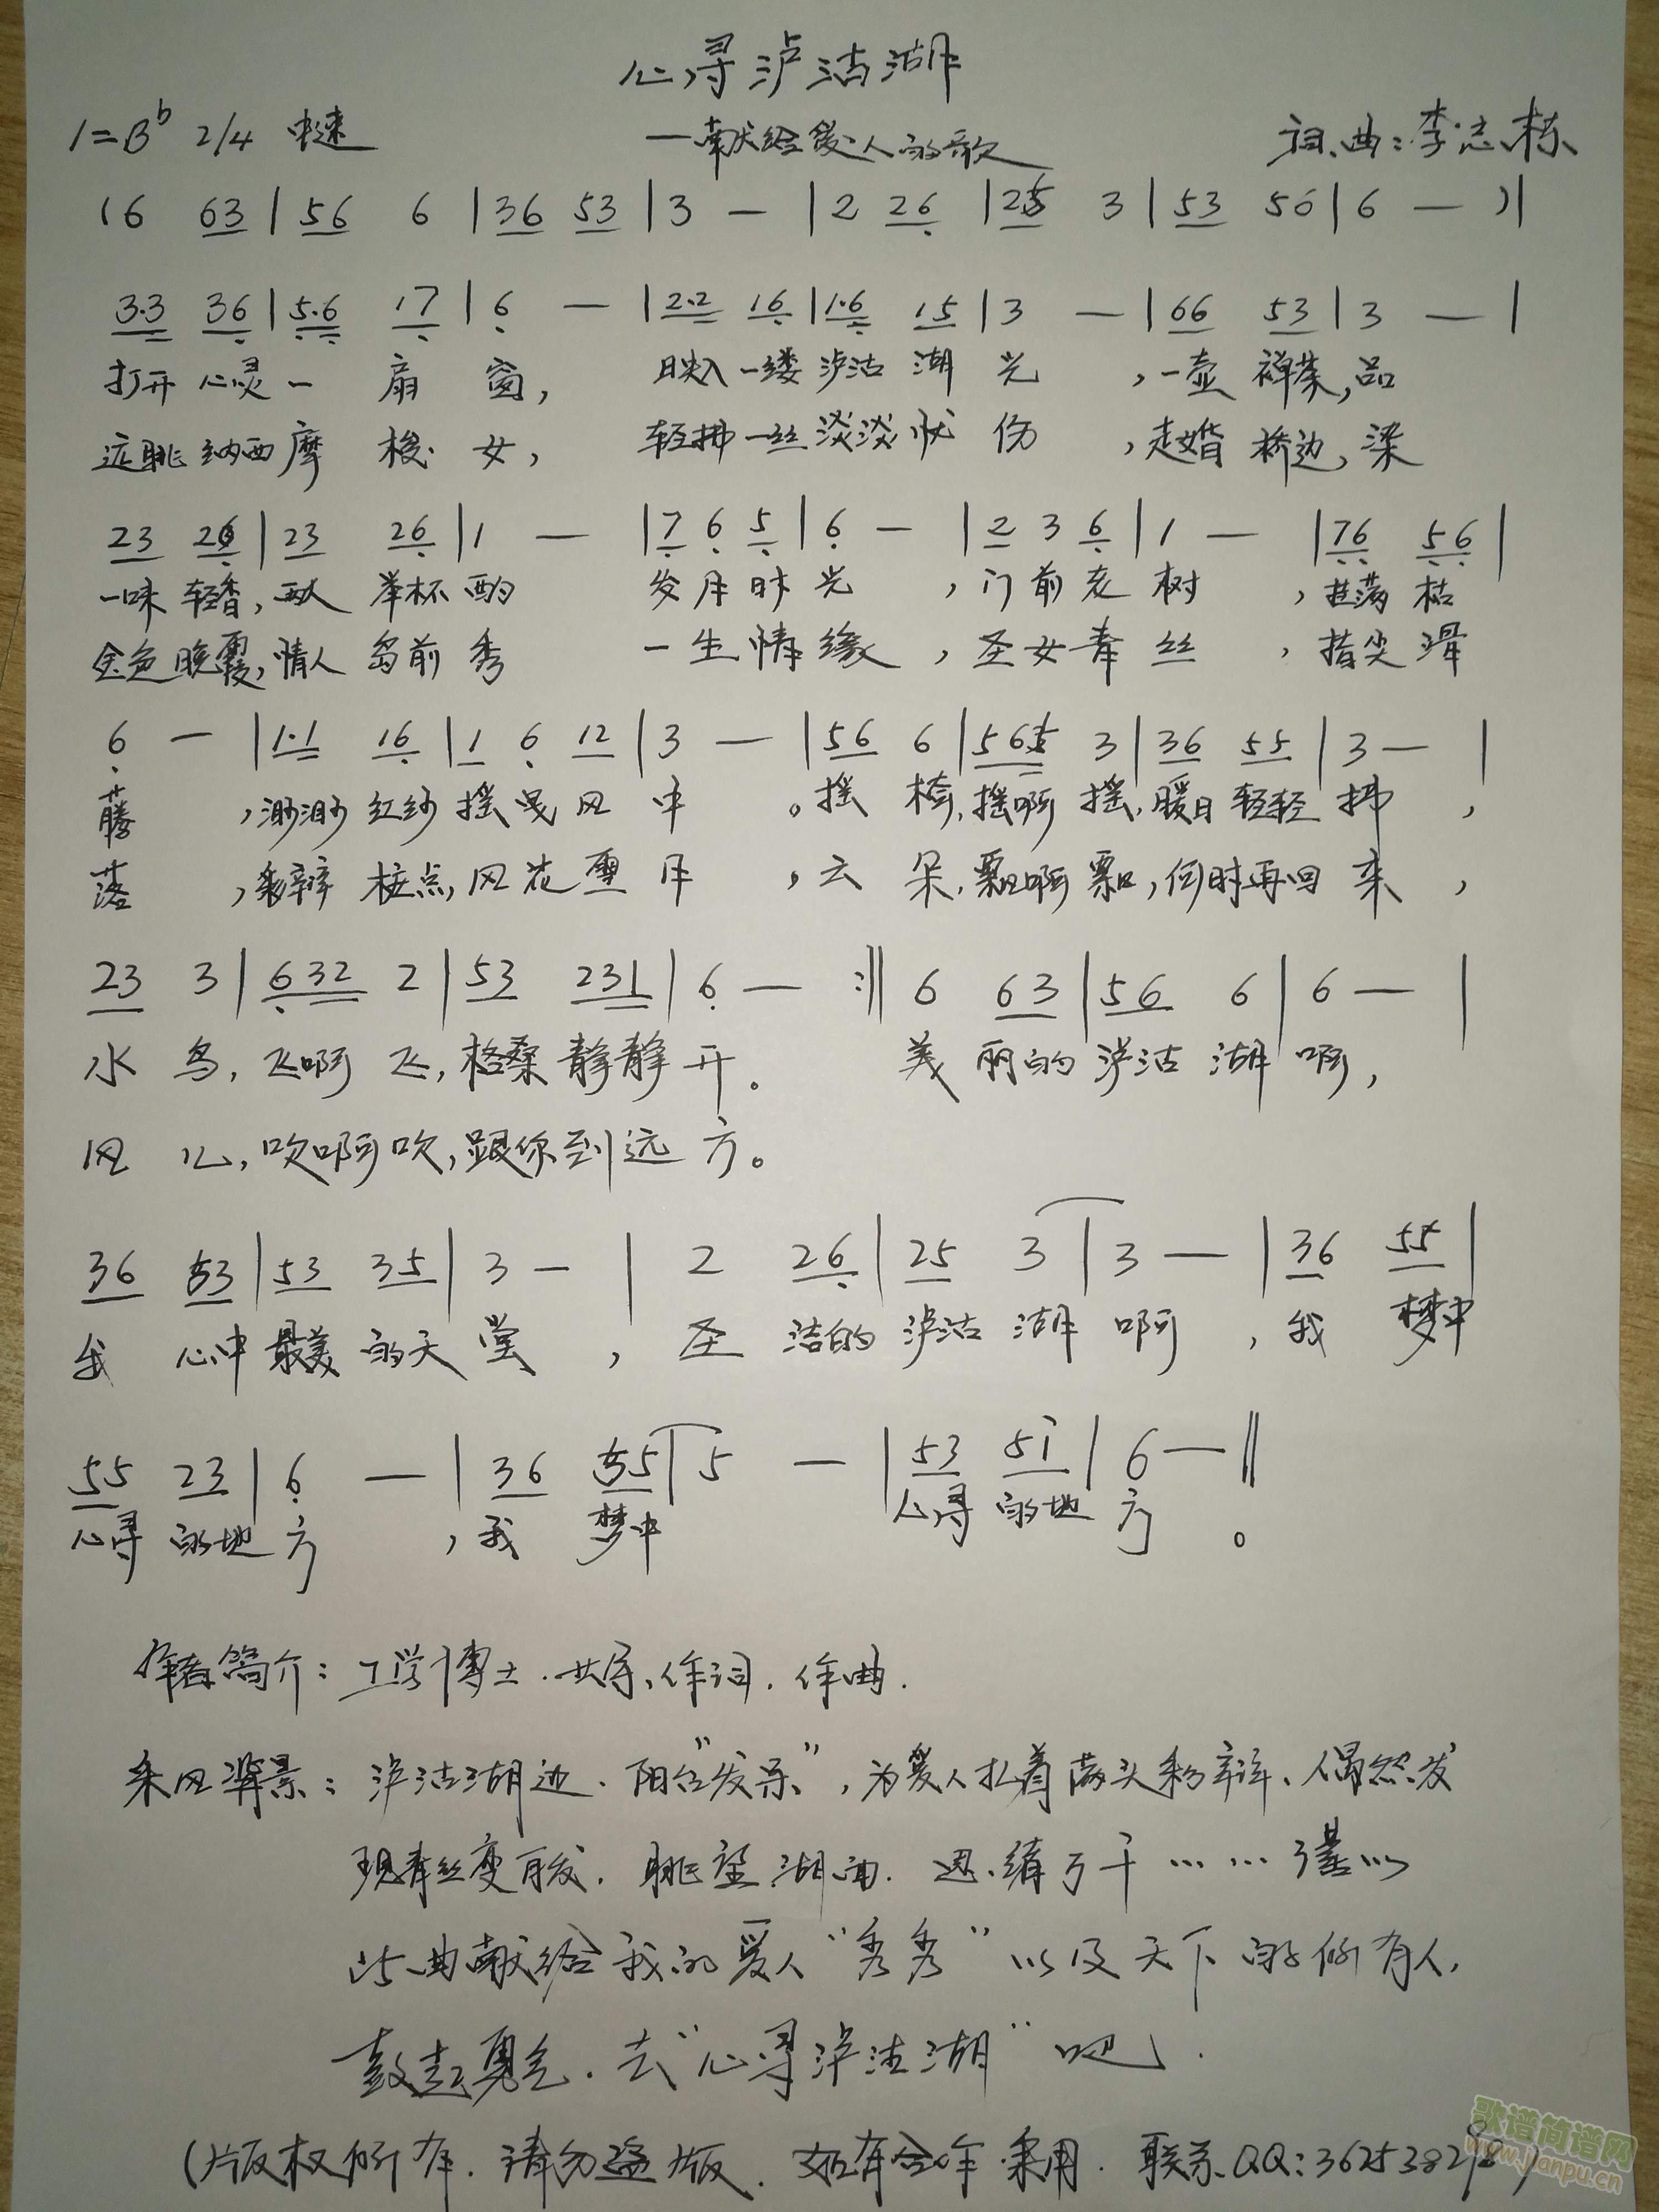 心寻泸沽湖
1=B♭ 2/4 中速 —献给爱人的歌 词、曲：李志栋
(6 63 | 56 6 | 36 53 | 3 — | 2 26 | 25 3 | 53 56 | 6 — )|
3·3 36 | 5·6 17 | 6 — | 2·2 16 | 1·6 15 | 3 — | 66 53 | 3 — |
打开心灵一 扇 窗， 映入一缕泸沽 湖 光 ，一壶 禅茶，品
远眺纳西摩 梭 女， 轻拂一丝淡淡忧 伤 ，走婚 桥边，染
23 26 | 23 26 | 1 — | 7 6 5 | 6 — | 2 3 6 | 1 — | 76 56 |
一味 轻香，两人 举杯 酌 岁月时光 ，门前老树 ，挂满 枯
金色晚霞，情人 岛前 秀 一生情缘 ，圣女青丝 ，指尖 滑
6 — | 1·1 16 | 1 6 12 | 3 — | 56 6 | 565 3 | 36 55 | 3 — |
藤 ，渺渺 红纱 摇曳风 中 。摇 椅，摇啊 摇，暖日 轻轻 拂 ，
落 ，彩辫 桩点，风花雪 月 ，云 朵，飘啊 飘，何时再回 来 ，
23 3 | 632 2 | 53 231 | 6 — :‖ 6 63 | 56 6 | 6 — |
水 鸟，飞啊 飞，格桑 静静 开。 美 丽的 泸沽 湖 啊，
风 儿，吹啊吹，跟你到远 方。
36 53 | 53 35 | 3 — | 2 26 | 25 3 | 3 — | 36 55 |
我 心中 最美 的天 堂 ， 圣 洁的 泸沽 湖 啊 ，我 梦中
55 23 | 6 — | 36 55 | 5 — | 53 5i | 6 — ‖
心寻 的地 方 ，我 梦中 心寻 的地 方 。
作者简介：工学博士．共导、作词．作曲．
采风背景：泸沽湖边．阳台“发呆”，为爱人扎着满头彩辫、偶然发
现青丝变白发．眺望湖面．思绪万千……谨以
此曲献给我的爱人“秀秀”以及天下的所有人，
鼓起勇气．去“心寻泸沽湖”吧．
(版权所有．请勿盗版．如有合作采用．联系QQ：36253829
歌谱简谱网
www.jianpu.cn